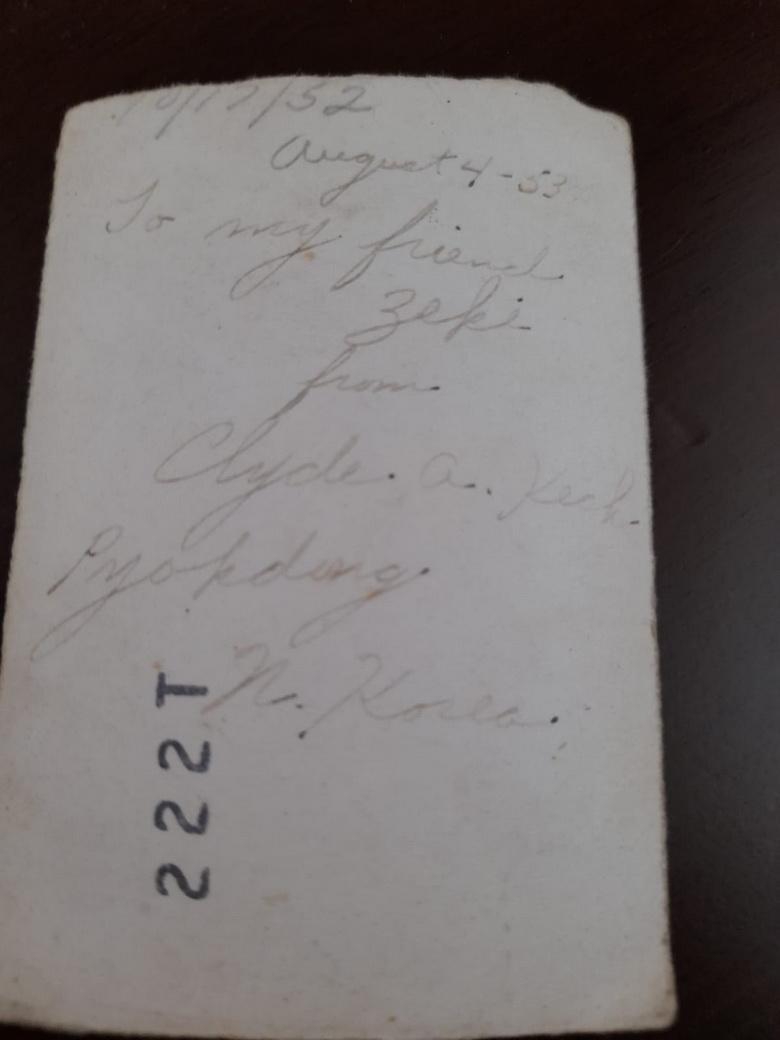 10/17/52
August 4-53
To my friend
Zeki
from
Clyde. A.
Pyokdong
N. Korea.
222T